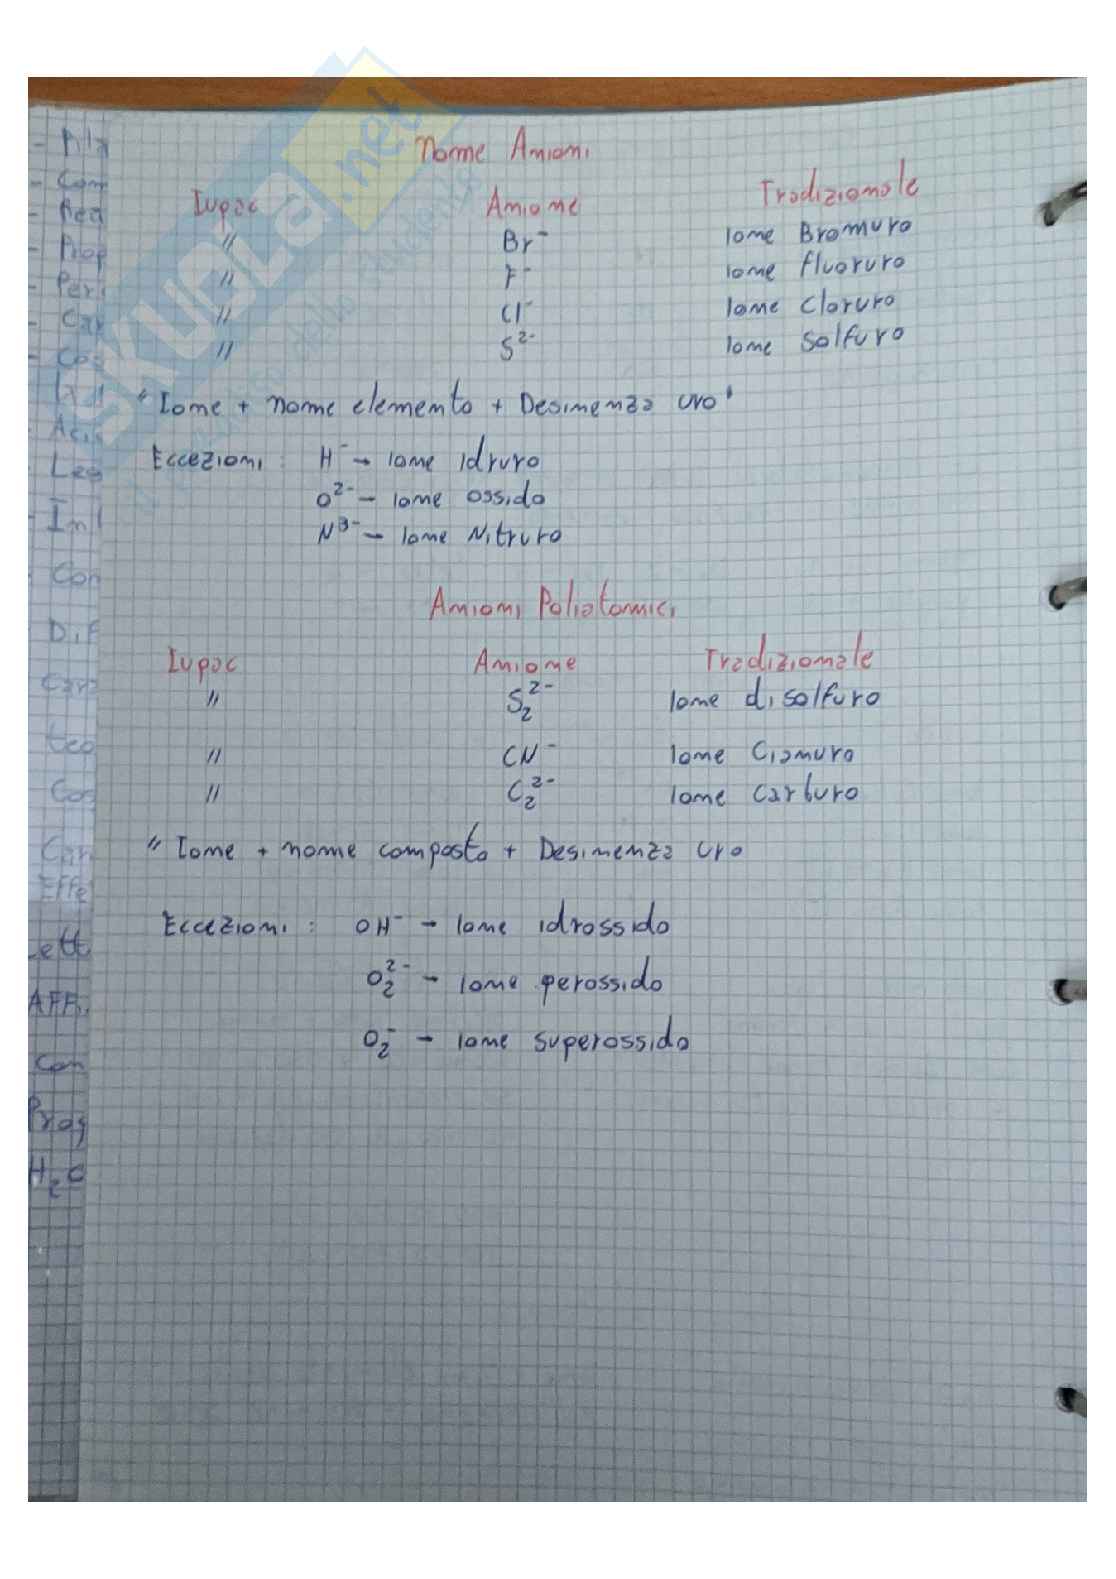 Nome Anioni
Iupac Anione Tradizionale
" Br⁻ Ione Bromuro
" F⁻ Ione fluoruro
" Cl⁻ Ione Cloruro
" S²⁻ Ione Solfuro
"Ione + nome elemento + Desinenza uro"
Eccezioni: H⁻ → Ione Idruro
O²⁻ – Ione ossido
N³⁻ – Ione Nitruro
Anioni Poliatomici
Iupac Anione Tradizionale
" S₂²⁻ Ione disolfuro
" CN⁻ Ione Cianuro
" C₂²⁻ Ione Carburo
" Ione + nome composto + Desinenza uro
Eccezioni: OH⁻ – Ione idrossido
O₂²⁻ – Ione perossido
O₂⁻ – Ione superossido
SKUOLA.net